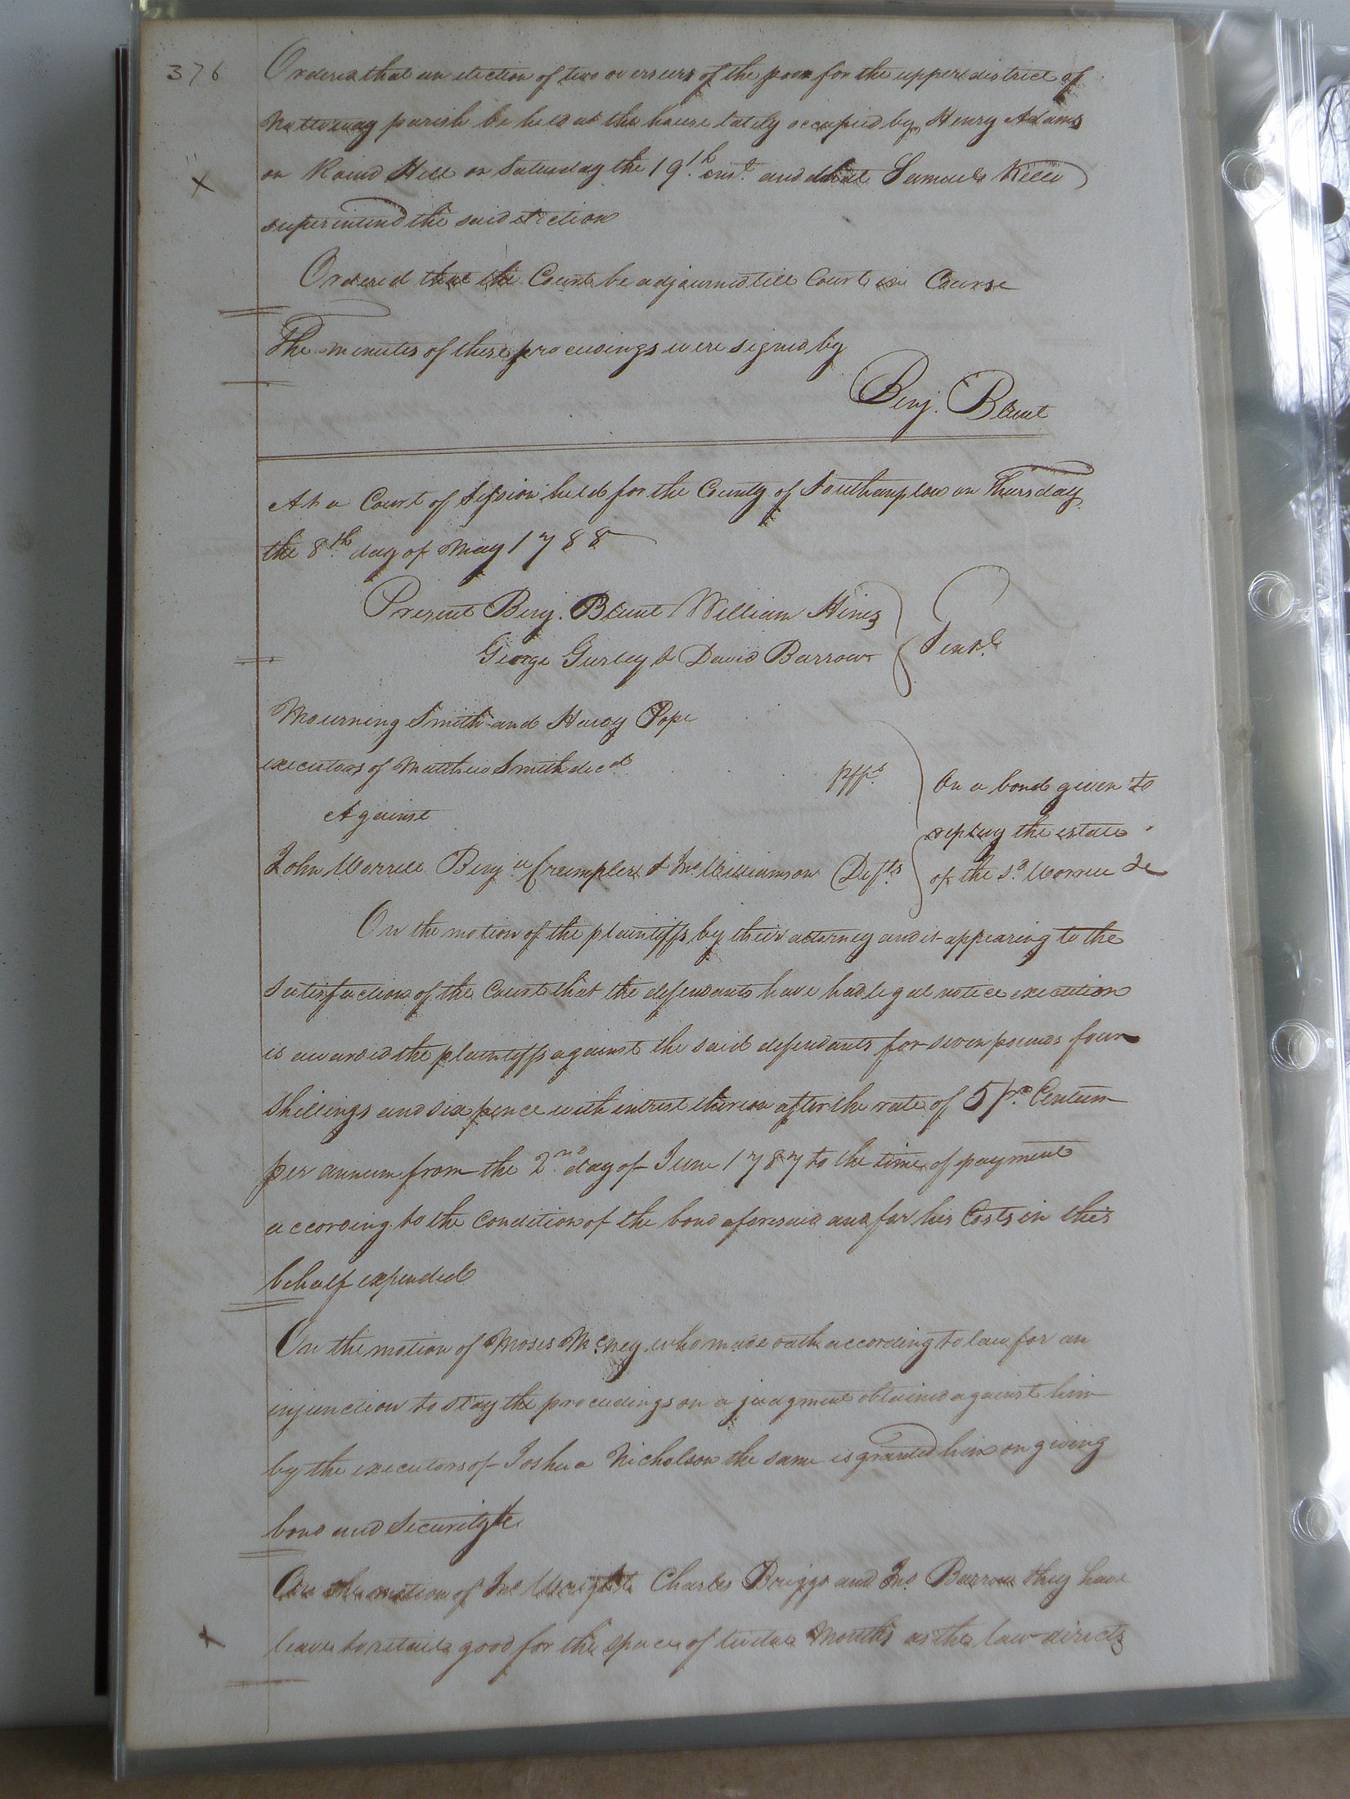 376
Ordered that an election of two overseers of the poor for the upper district of
Nottoway parish be held at the house lately occupied by Henry Adams
on Round Hill on Saturday the 19th inst and that Samuel Kello
superintend the said election
Ordered that the Court be adjourned till Court in Course
The minutes of these proceedings were signed by
Benj. Blunt
At a Court of Session held for the County of Southampton on Thursday
the 8th day of May 1788
Present Benj. Blunt William Hines
George Gurley & David Barrow
Gent.
Mourning Smith and Henry Pope
executors of Matthew Smith decd
pffs
Against
John Worrell Benja Crumpler & Jno Williamson Defts
On a bond given to
replevy the estate
of the sd Worrell &c
On the motion of the plaintiffs by their attorney and it appearing to the
satisfaction of the Court that the defendants have had legal notice execution
is awarded the plaintiffs against the said defendants for seven pounds four
shillings and six pence with intrest thereon after the rate of 5 pr. Centum
per annum from the 2nd day of June 1787 to the time of payment
according to the condition of the bond aforesaid and for his Costs in this
behalf expended
On the motion of Moses who made oath according to law for an
injunction to stay the proceedings on a judgment obtained against him
by the executors of Joshua Nicholson the same is granted him on giving
bond and Security &c
On the motion of Jno Wright Charles Briggs and Jno Barrow they have
leave to retail good for the space of twelve Months as the law directs